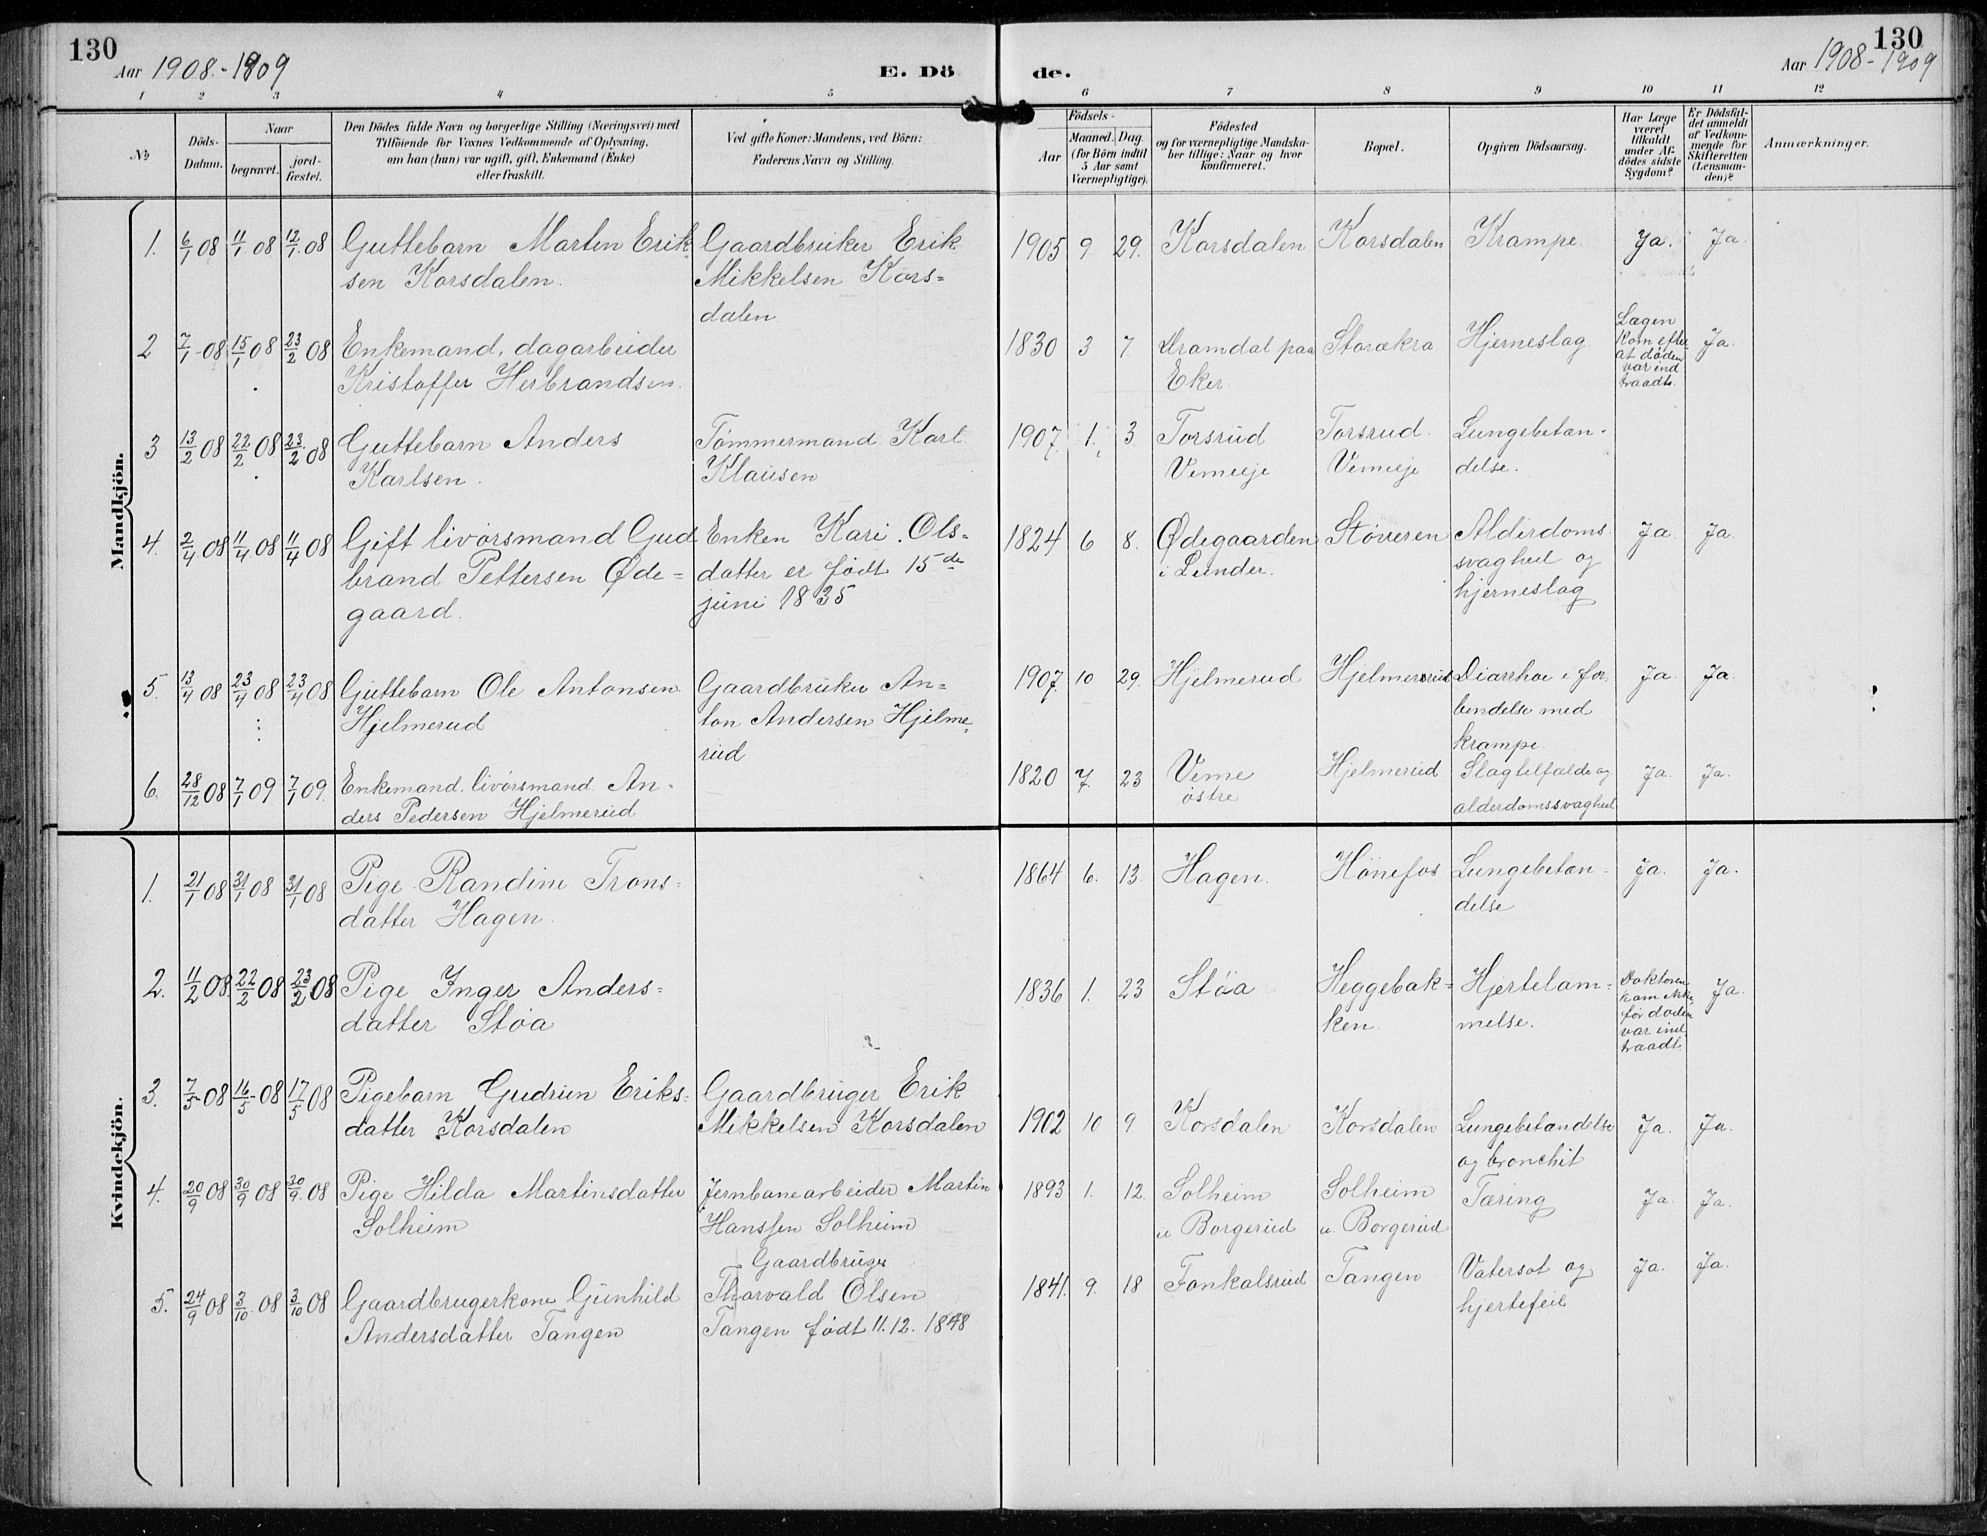 130
Aar 1908.-1909
E. Dö
de.
130
Aar 1908-1909
1 2 3 4 5 6 7 8 9 10 11 12
No.
Döds-
Datum.
Naar
begravet.
jord-
fæstet.
Den Dödes fulde Navn og borgerlige Stilling (Næringsvei) med
Tilföiende for Voxnes Vedkommende af Oplysning,
om han (hun) var ugift, gift, Enkemand (Enke)
eller fraskilt.
Ved gifte Koner: Mandens, ved Börn:
Faderens Navn og Stilling.
Födsels-
Aar
Maaned. Dag.
(for Börn indtil
5 Aar samt
Værnepligtige).
Födested
og for værnepligtige Mandska-
ber tillige: Naar og hvor
konfirmeret.
Bopæl.
Opgiven Dödsaarsag.
Har Læge
været
tilkaldt
under Af-
dödes sidste
Sygdom?
Er Dödsfal-
det anmeldt
af Vedkom-
mende for
Skifteretten
(Lensman-
den)?
Anmærkninger.
Mandkjön.
1. 6/1 08 11/1 08 12/1 08 Guttebarn Marten Erik- Gaardbruker Erik 1905 9 29. Korsdalen Korsdalen Krampe. Ja. Ja.
sen Korsdalen. Mikkelsen Kors=
dalen
2 7/1 08 15/1 08 23/2 08 Enkemand, dagarbeider 1830 3 7. Dramdal paa Storækra Hjerneslag Lægen Ja.
Kristoffer Herbrandsen. Eker. kom efter
at døden
var ind
traadt.
3 13/2 08 22/2 08 23/2 08 Guttebarn Anders Tømmermand Karl 1907. 1. 3. Torsrud Torsrud. Lungebetæn-
Karlsen. Klausen Vemeeje Vemeeje delse.
4. 2/4 08 11/4 08 11/4 08 Gift livørsmand Gud Enken Kari Ols= 1824 6 8. Ødegaarden Støveren Alderdoms Ja. Ja.
brand Pettersen Øde= datter er født 15de i Lunder. svaghed og
gaard. juni 1835 hjerneslag
5. 13/4 08 23/4 08 23/4 08 Guttebarn Ole Antonsen Gaardbruker An= 1907. 10 29. Hjelmerud Hjelmerud Diarrhoe i for Ja Ja.
Hjelmerud ton Andersen Hjelme- bindelse med
rud krampe.
6. 28/12 08 7/1 09 7/1 09. Enkemand, livørsmand An- 1820 7. 23 Veme Hjelmerud Slagtilfælde og Ja. Ja.
ders Pedersen Hjelmerud østre alderdomssvaghed
Kvindekjön.
1. 21/1 08 31/1 08 31/1 08 Pige Randine Trons= 1864 6. 13. Hagen. Hønefos Lungebetæn- Ja. Ja.
datter Hagen. delse
2. 11/2 08. 22/2 08 23/2 08 Pige Inger Anders= 1836 1. 23 Støa Heggebak= Hjertelam= Doktoren Ja.
datter Støa ken. melse. kom ikke
før døden
var ind
traadt.
3. 7/5 08 16/5 08 17/5 08 Pigebarn Gudrun Eriks= Gaardbruger Erik 1902 10 9 Korsdalen Korsdalen Lungebetændelse Ja. Ja.
datter Korsdalen Mikkelsen Korsdalen og bronchit
4. 20/9 08 30/9 08 30/9 08 Pige Hilda Martinsdatter Jernbanearbeider Martin 1893 1. 12. Solheim Solheim Tæring Ja. Ja.
Solheim Hanssen Solheim u Borgerud u. Borgerud
Gaardbruger
5. 24/9 08 3/10 08 3/10 08 Gaardbrugerkone Gunhild Thorvald Olsen 1841. 9. 18 Fonkalsrud Tangen Vatersot og Ja. Ja.
Andersdatter Tangen Tangen født 11.12.1848 hjertefeil